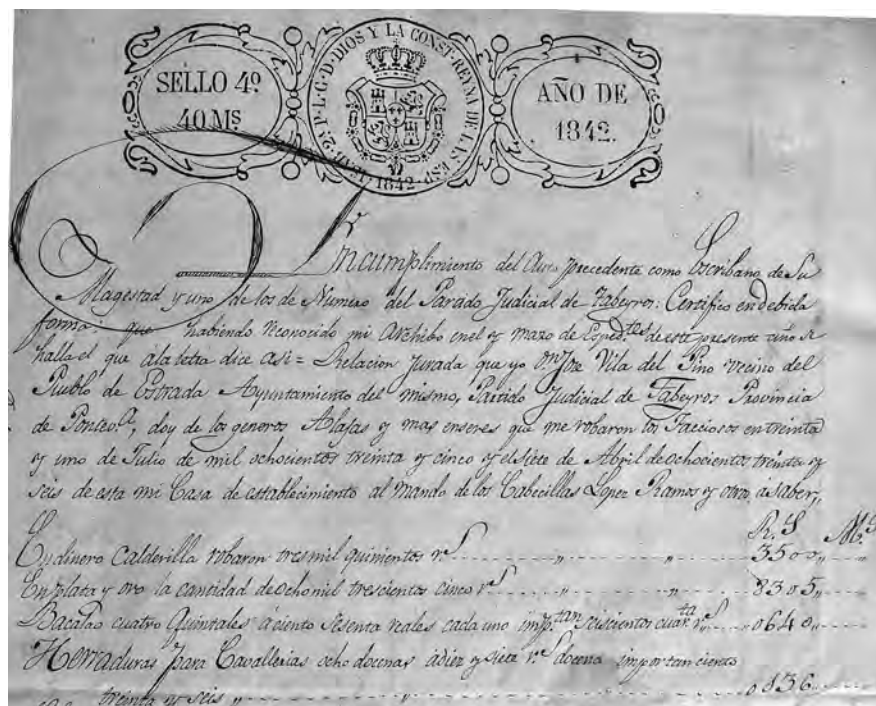 SELLO 4º
40 Ms
ISAB. 2ª P. L. G. D. DIOS Y LA CONST. REYNA DE LAS ESP. 1842
AÑO DE
1842.
En cumplimiento del Auto precedente como Escribano de Su
Magestad y uno de los de Numero del Partido Judicial de Tabeyros: Certifico en debida
forma: que habiendo reconocido mi Archibo en el y mazo de Esped.tes de este presente año se
halla el que ala letra dice asi = Relacion jurada que yo Dn Jose Vila del Pino vecino del
Pueblo de Estrada Ayuntamiento del mismo, Partido Judicial de Tabeyros Provincia
de Pontev.a, doy de los generos Alajas y mas enseres que me robaron los Facciosos en treinta
y uno de Julio de mil ochocientos treinta y cinco y el siete de Abril de ochocientos treinta y
seis de esta mi Casa de establecimiento al mando de los Cabecillas Lopez Ramos y otros, asaber,,
R.s Ms
En dinero Calderilla robaron tres mil quinientos rs 3500,,
En plata y oro la cantidad de ocho mil trescientos cinco rs 8305,,
Bacalao cuatro Quintales á ciento sesenta reales cada uno imp.tan seiscientos cuar.ta rs 0640,,
Herraduras para Cavallerias ocho docenas a diez y siete rs docena importan ciento
treinta y seis,, 0136,,